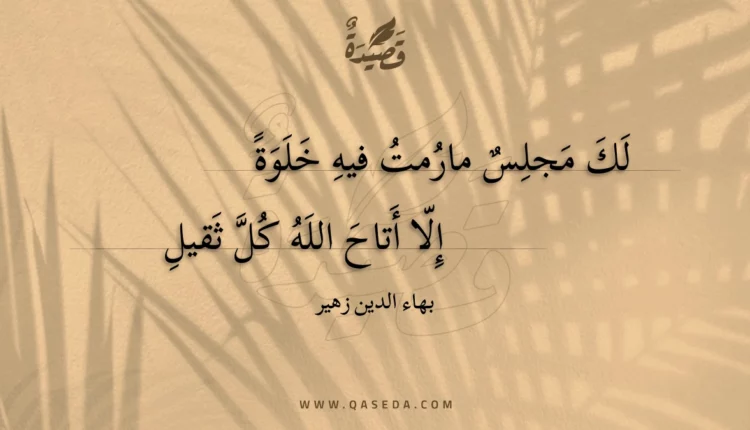 قَصِيْدَةٌ
لَكَ مَجلِسٌ مارُمتُ فيهِ خَلَوَةً
إِلّا أَتاحَ اللَهُ كُلَّ ثَقيلِ
بهاء الدين زهير
WWW.QASEDA.COM